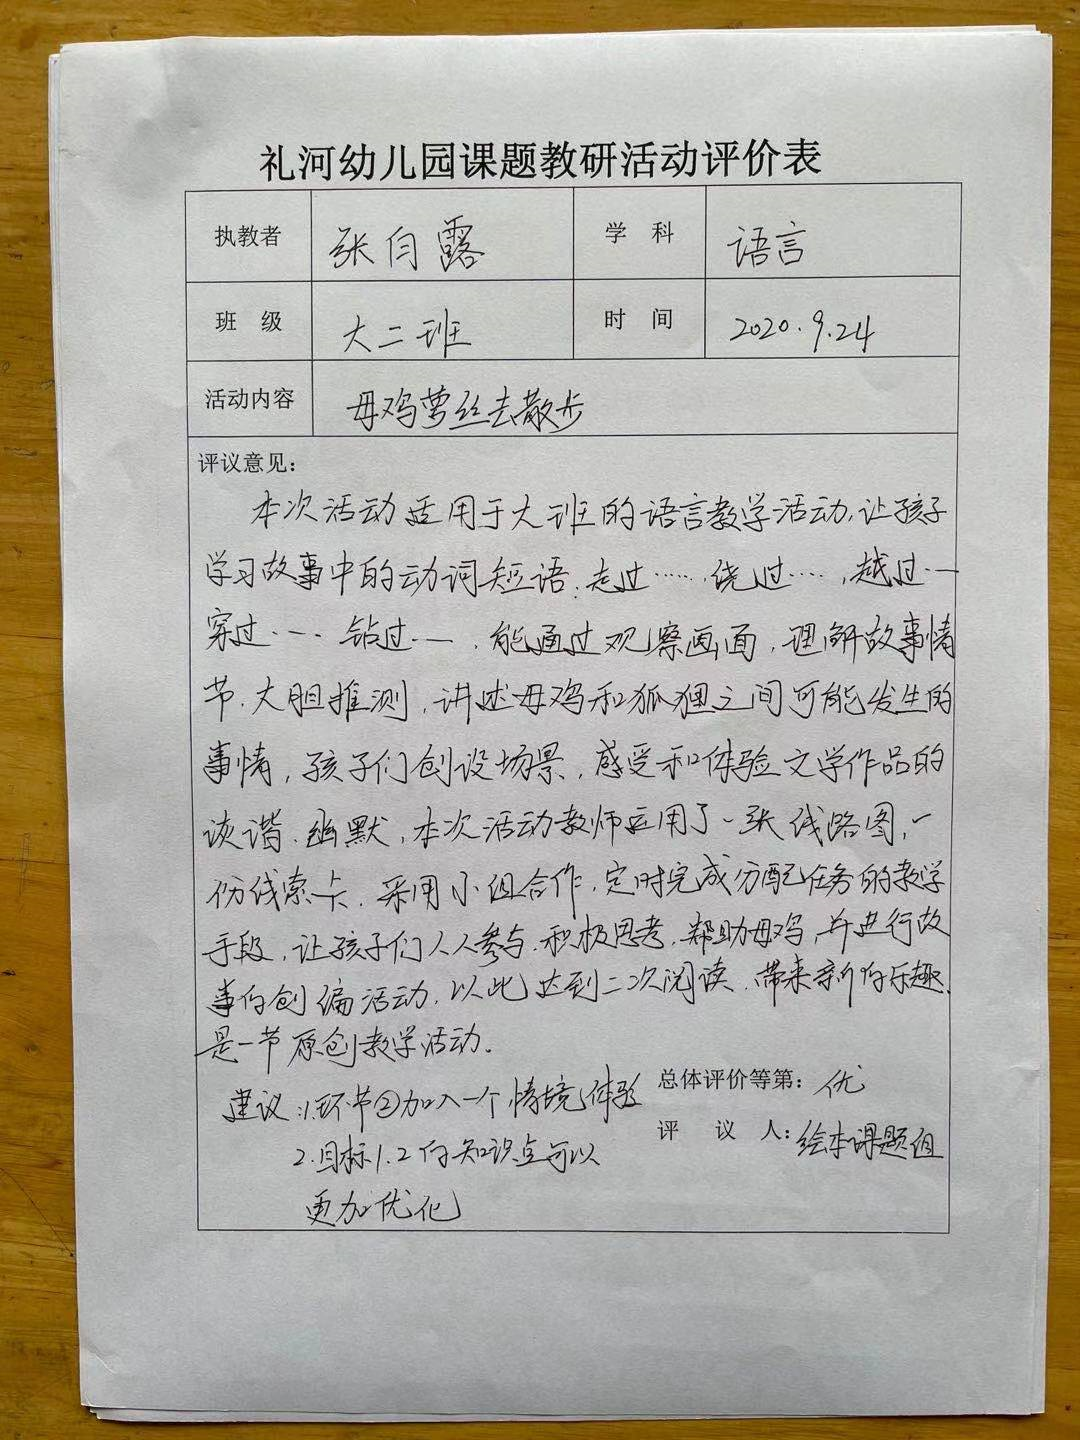 礼河幼儿园课题教研活动评价表
执教者 张自露 学 科 语言
班 级 大二班 时 间 2020.9.24
活动内容 母鸡萝丝去散步
评议意见：
本次活动适用于大班的语言教学活动,让孩子
学习故事中的动词短语:走过……绕过……,越过……
穿过…… 钻过……,能通过观察画面,理解故事情
节.大胆推测,讲述母鸡和狐狸之间可能发生的
事情,孩子们创设场景,感受和体验文学作品的
诙谐.幽默,本次活动教师应用了一张线路图,一
份线索卡.采用小组合作,定时完成分配任务的教学
手段,让孩子们人人参与.积极思考,帮助母鸡,并进行故
事的创编活动.以此达到二次阅读.带来新的乐趣.
是一节原创教学活动.
建议:1.环节②加入一个情境体验
2.目标1.2的知识点可以
更加优化
总体评价等第：优
评 议 人：绘本课题组